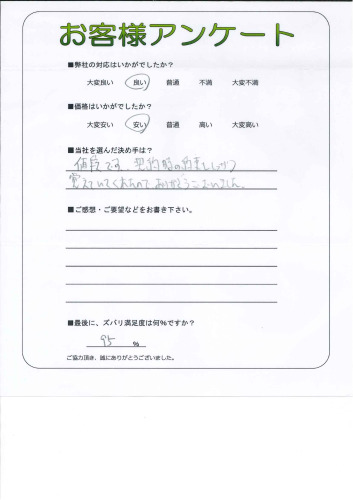 お客様アンケート
■弊社の対応はいかがでしたか？
大変良い 良い 普通 不満 大変不満
■価格はいかがでしたか？
大変安い 安い 普通 高い 大変高い
■当社を選んだ決め手は？
値段です。契約時の約束もしっかり
覚えていてくれたので ありがとうございました。
■ご感想・ご要望などをお書き下さい。
■最後に、ズバリ満足度は何％ですか？
95 ％
ご協力頂き、誠にありがとうございました。